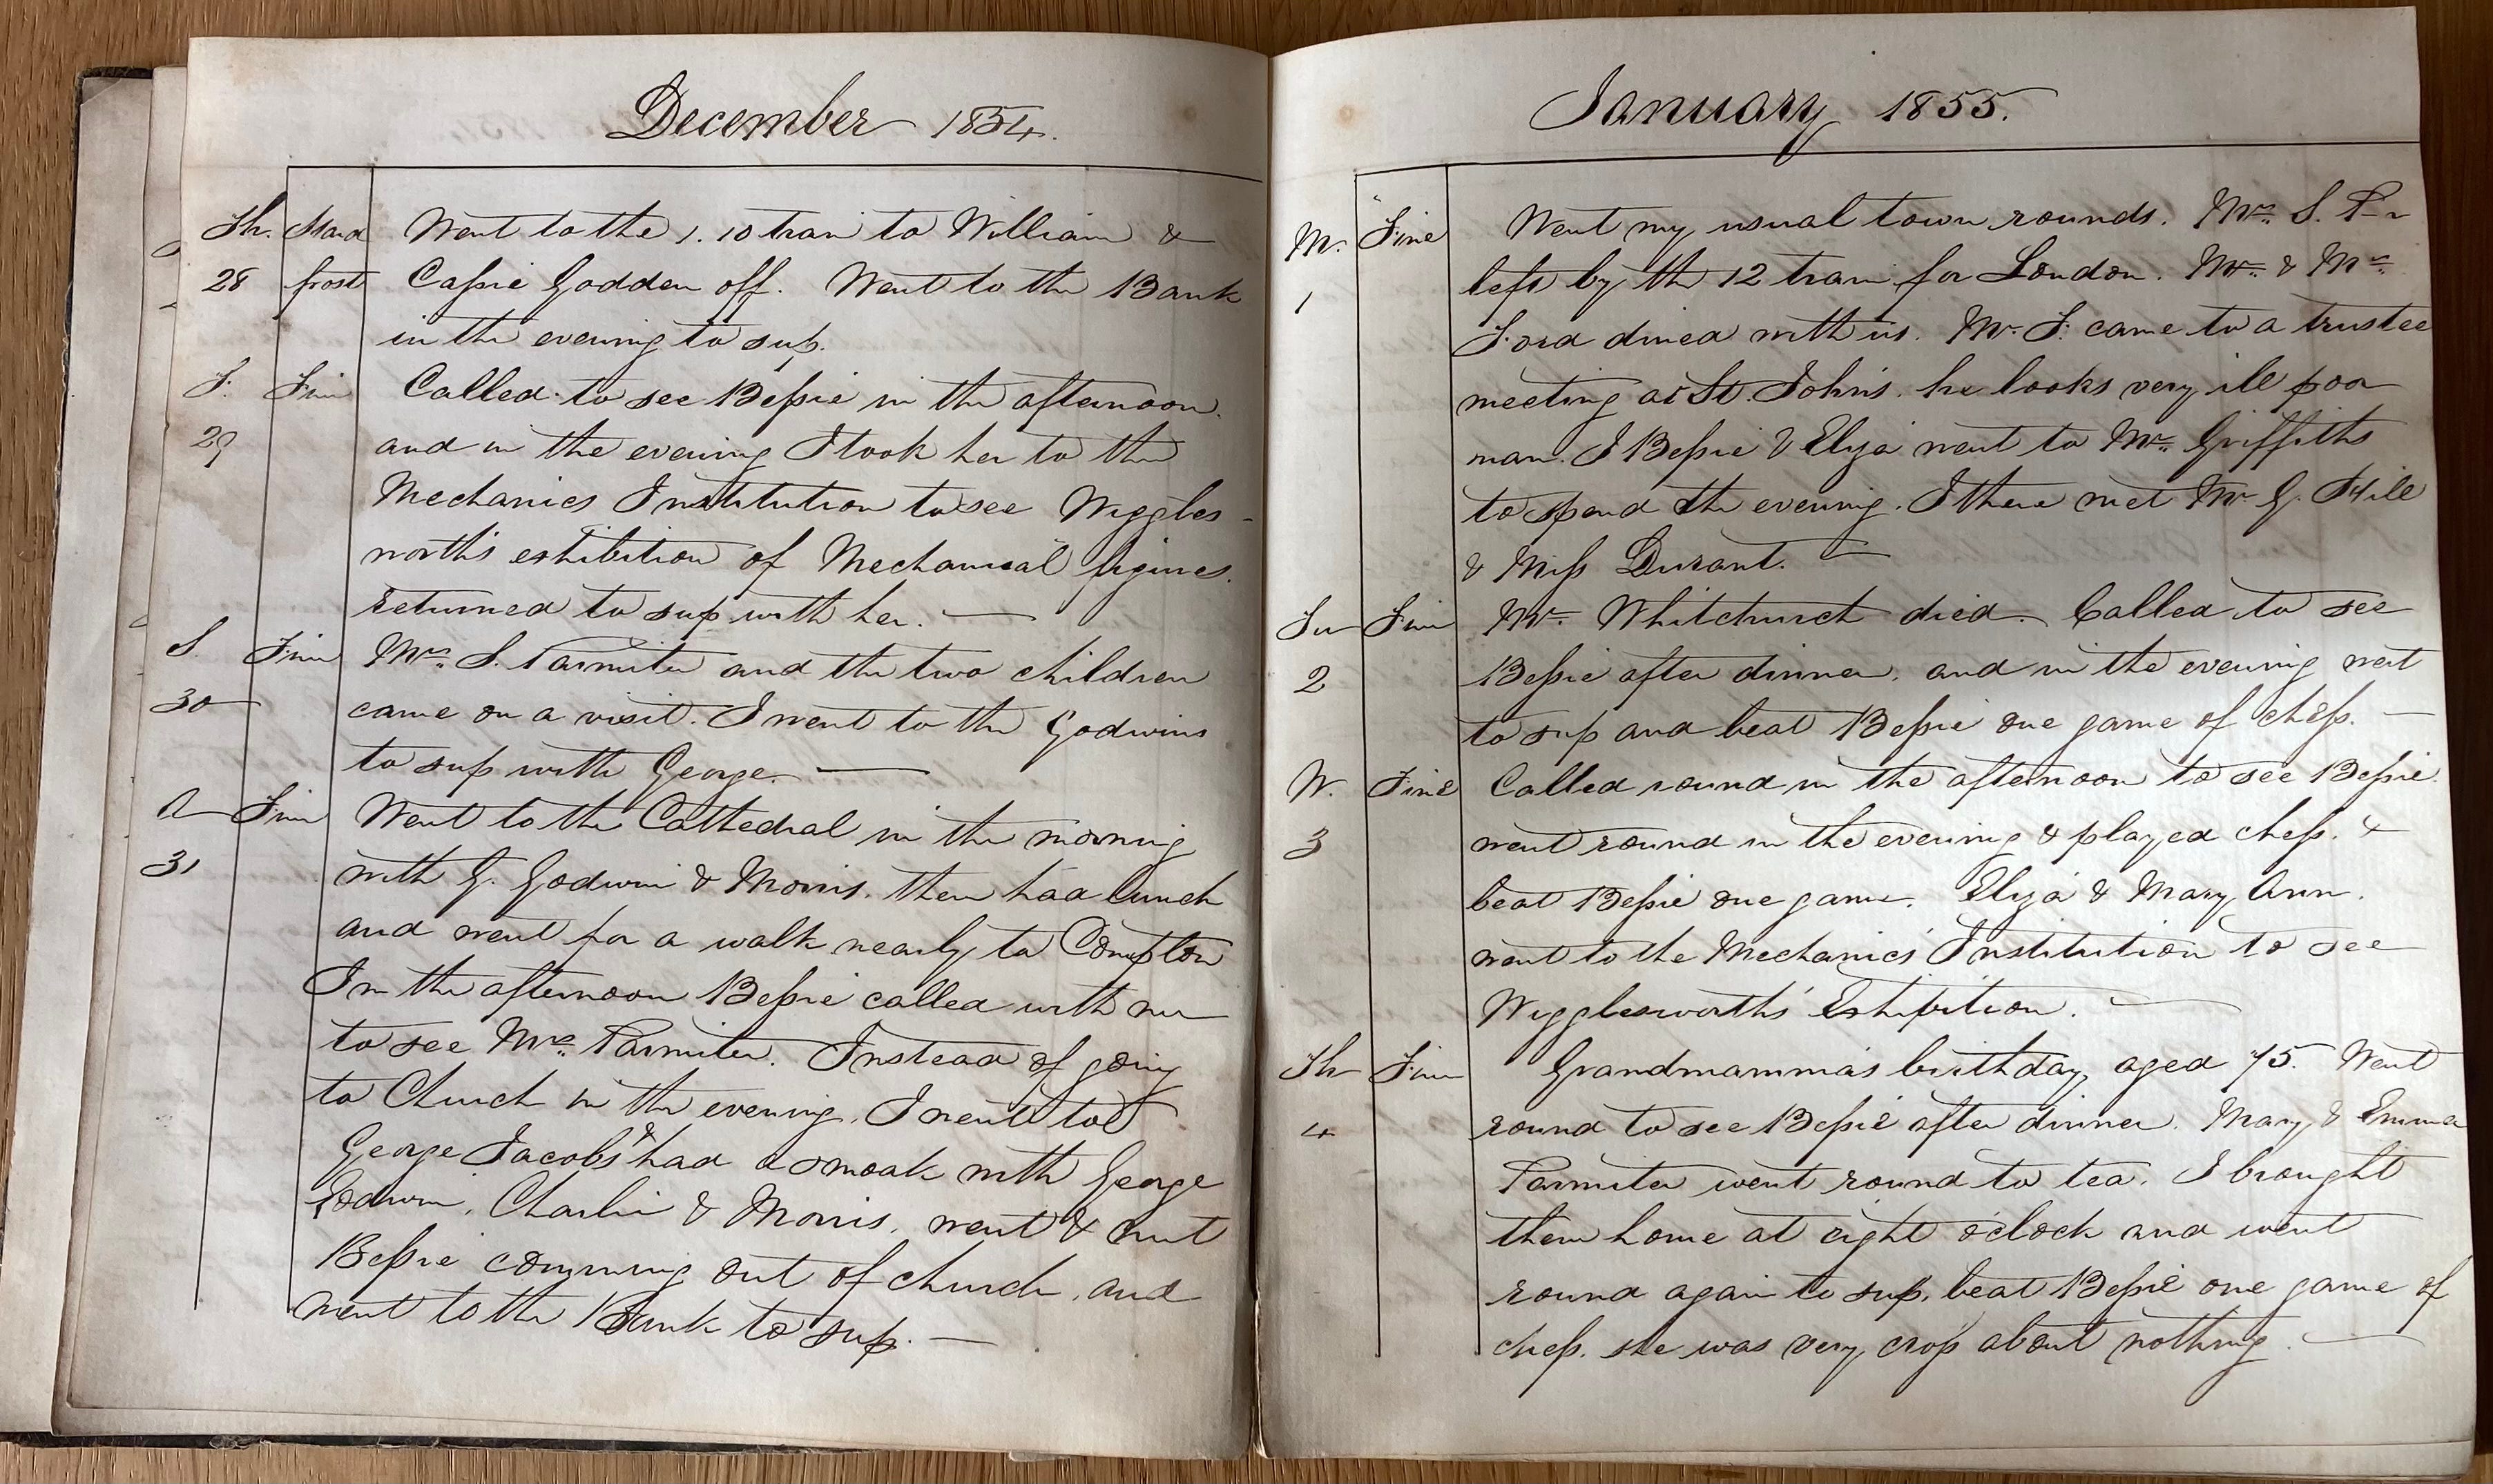 December 1854.
Th. Hard Went to the 1.10 train to William &
28 frost Cassie Godden off. Went to the Bank
in the evening to sup.
F. Fine Called to see Bessie in the afternoon.
29 and in the evening I took her to the
Mechanics Institution to see Wiggles-
worth's exhibition of Mechanical figures.
returned to sup with her. —
S. Fine Mrs. S. Parmiter and the two children
30 came on a visit. I went to the Godwins
to sup with George. —
Fine Went to the Cathedral in the morning
31 with G. Godwin & Morris. then had lunch
and went for a walk nearly to Compton
In the afternoon Bessie called with me
to see Mrs. Parmiter. Instead of going
to Church in the evening, I went to
George Jacobs & had a smoak with George
Godwin, Charlie & Morris, went & met
Bessie comming out of church, and
went to the Bank to sup. —
January 1855.
M. Fine Went my usual town rounds. Mrs. S. P—r
1 left by the 12 train for London. Mr. & Mrs.
Ford dined with us. Mr. F. came to a trustee
meeting at St. John's. he looks very ill poor
man. I Bessie & Eliza went to Mrs. Griffiths
to spend the evening. I there met Mr. G. Hill
& Miss Durant. —
Tu Fine Mr. Whitchurch died. Called to see
2 Bessie after dinner. and in the evening went
to sup and beat Bessie one game of chess. —
W. Fine Called round in the afternoon to see Bessie.
3 went round in the evening & played chess. &
beat Bessie one game. Eliza & Mary Ann.
went to the Mechanics' Institution to see
Wigglesworth's Exhibition. —
Th Fine Grandmamma's birthday, aged 75. Went
4 round to see Bessie after dinner. Mary & Emma
Parmiter went round to tea. I brought
them home at eight o'clock and went
round again to sup, beat Bessie one game of
chess. she was very cross about nothing. —